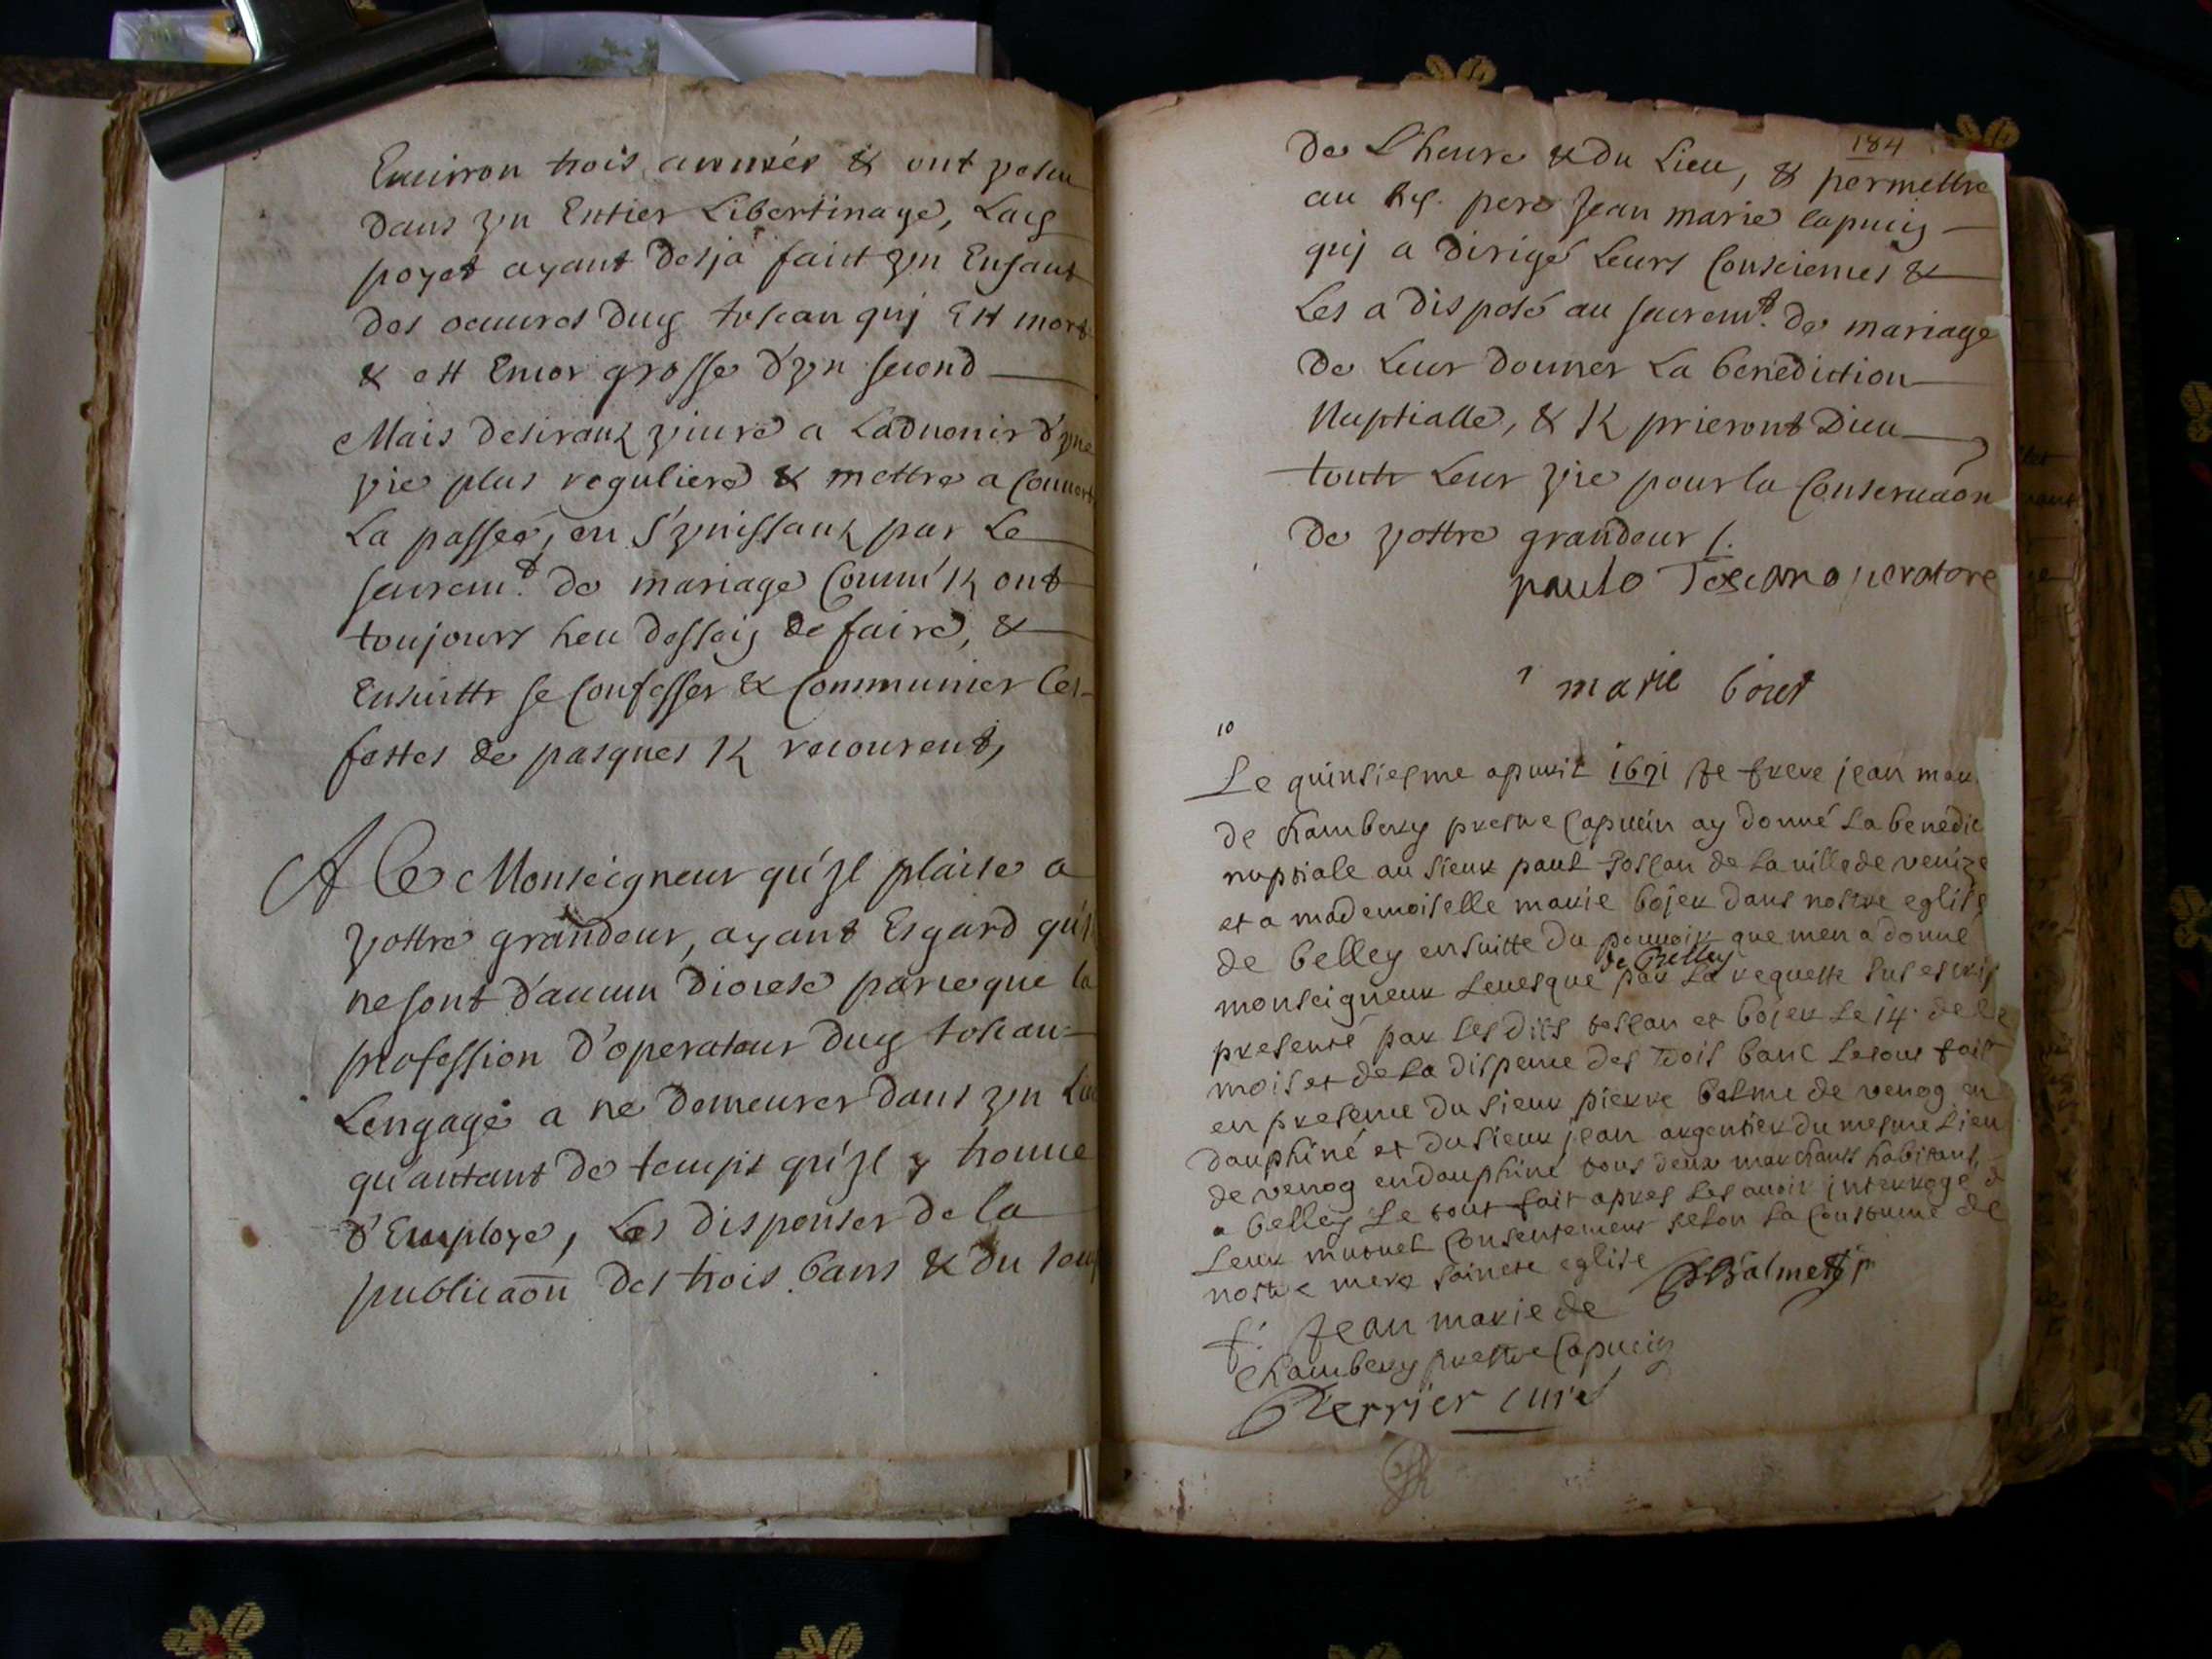 Enuiron trois années & ont vescu
dans vn Entier Libertinage, Lad.
poyet ayant desja faict vn Enfant
des oeuures dud. toscan quj Est mort
& est Encor grosse d'vn second
Mais desirantz viure a Laduenir d'vne
vie plus reguliere & mettre a Couuert
La passée, en s'vnissantz par Le
sacrem.t de mariage Comm'ilz ont
toujours heu dessein de faire, &
Ensuitte se Confesser & Communier Ces
festes de pasques Ilz recourent,
A Ce Monseigneur qu'jl plaise a
vostre grandeur, ayant Esgard qu'ilz
ne sont d'aucun diocese parceque la
profession d'operateur dud. toscan
Lengage a ne demeurer dans vn Lieu
qu'autant de temps qu'jl y trouue
d'Employe, Les dispenser de la
publicaõn des trois bans & du
184
de L'heure & du Lieu, & permettre
au Rd. pere Jean marie Capucin
quj a dirigé Leurs Consciences &
Les a disposé au sacrem.t de mariage
de Leur donner La benediction
Nuptialle, & Ilz prieront Dieu
toute Leur vie pour la Conseruaõn
de vostre grandeur /.
paulo Toscano operatore
marie
10
Le quinsiesme apuril 1671 Je frere jean mari
de chambery prestre Capucin ay donné La benedic
nuptiale au sieur paul Toscan de La ville de venize
et a mademoiselle marie bojer dans nostre eglise
de belley ensuitte du pouuoir que men a donné
monseigneur Leuesque de Belley par La requeste sus escrip
presenté par Les dits toscan et bojer Le 14. de Ce
mois et de La dispence des trois banc Le tout fait
en presence du sieur pierre balme de venog en
dauphiné et du sieur jean argentier du mesme Lieu
de venog en dauphiné tous deux marchants habitants
a belley Le tout fait apres Les auoir jnterrogé d
Leur mutuel Consentement selon La Coustume de
nostre mere saincte eglise
f. Jean marie de
Chambery prestre Capucin
Perrier curé